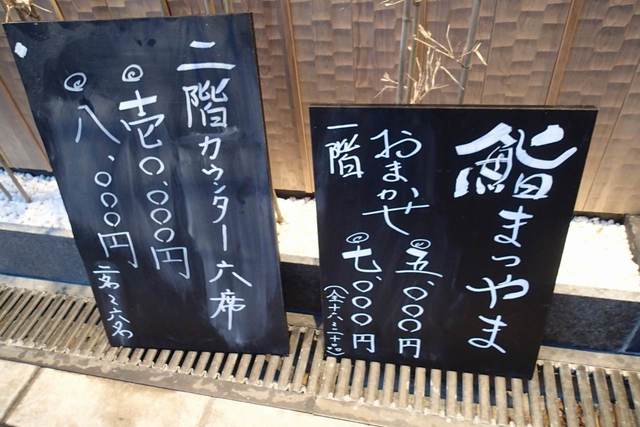 鮨まつやま
一階
おまかせ
五、〇〇〇円
七、〇〇〇円
(全十八〜二十品)
二階カウンター六席
壱〇、〇〇〇円
八、〇〇〇円
二名〜六名